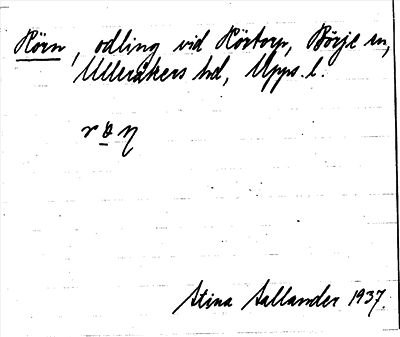 Hörn, odling vid Hörtorp, Börje sn,
Ulleråkers hd, Upps. l.
Stina Sallander 1937.